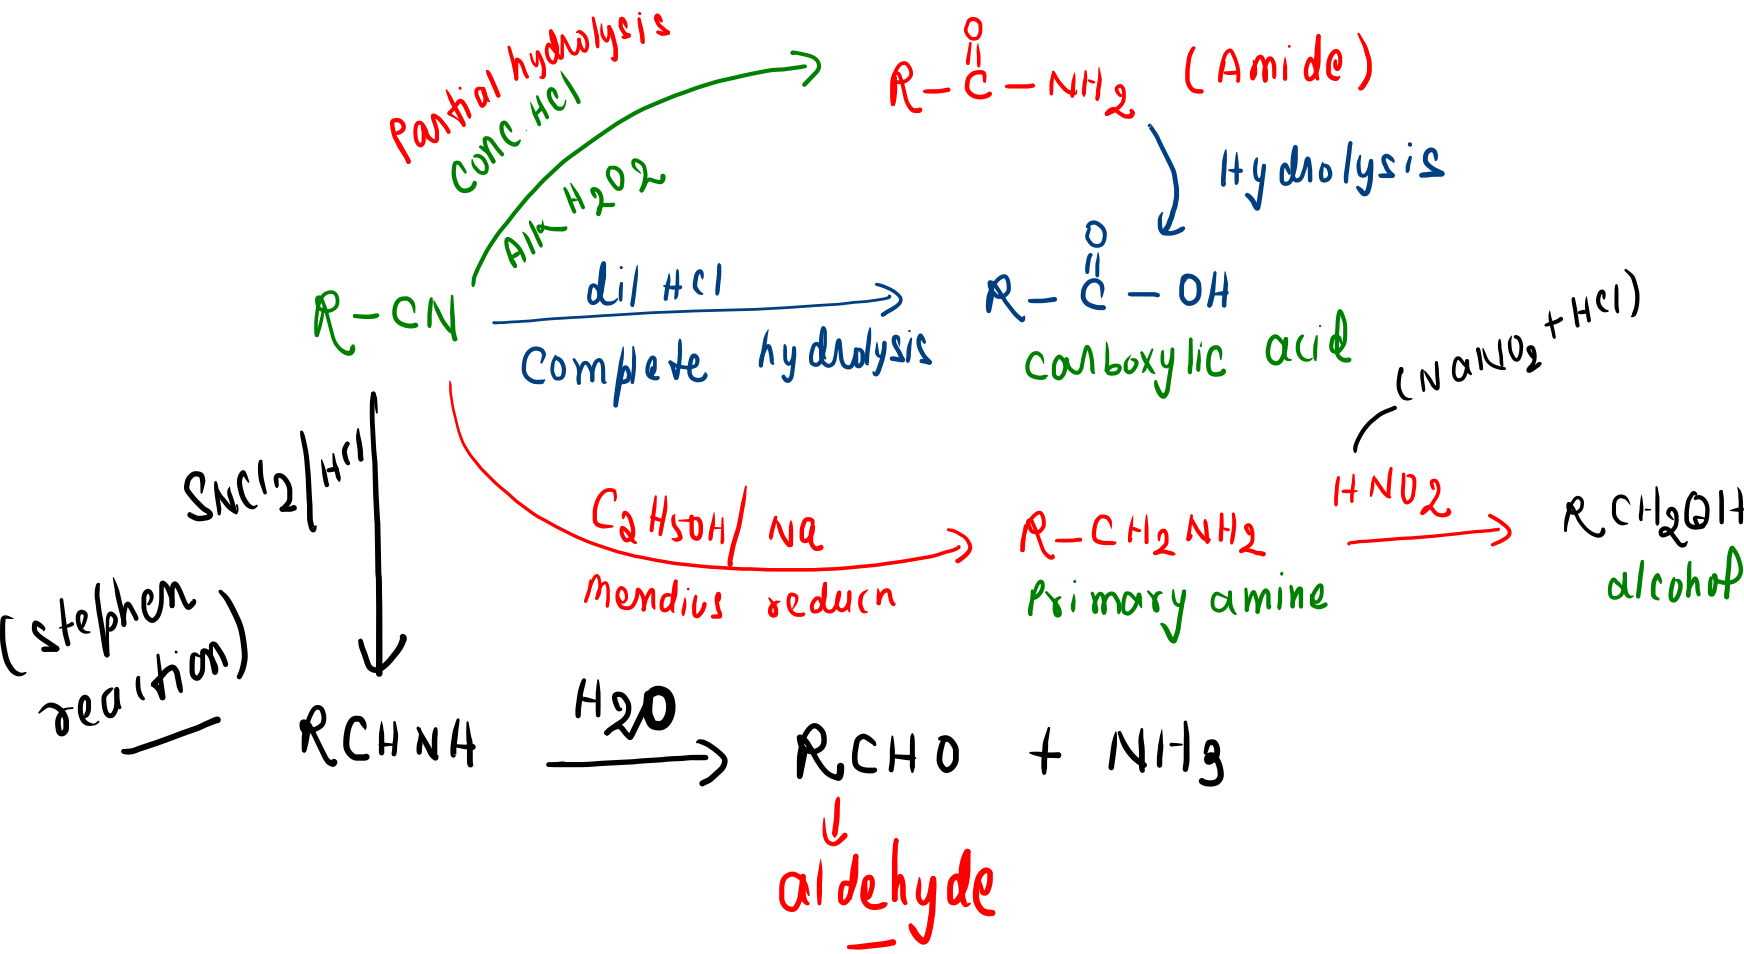 Partial hydrolysis
conc. HCl
Alk H2O2
O
R-C-NH2 (Amide)
Hydrolysis
R-CN
dil HCl
Complete hydrolysis
O
R-C-OH
carboxylic acid
(NaNO2+HCl)
SnCl2/HCl
(stephen
reaction)
C2H5OH/Na
Mendius reducn
R-CH2NH2
Primary amine
HNO2
RCH2OH
alcohol
RCHNH
H2O
RCHO + NH3
aldehyde